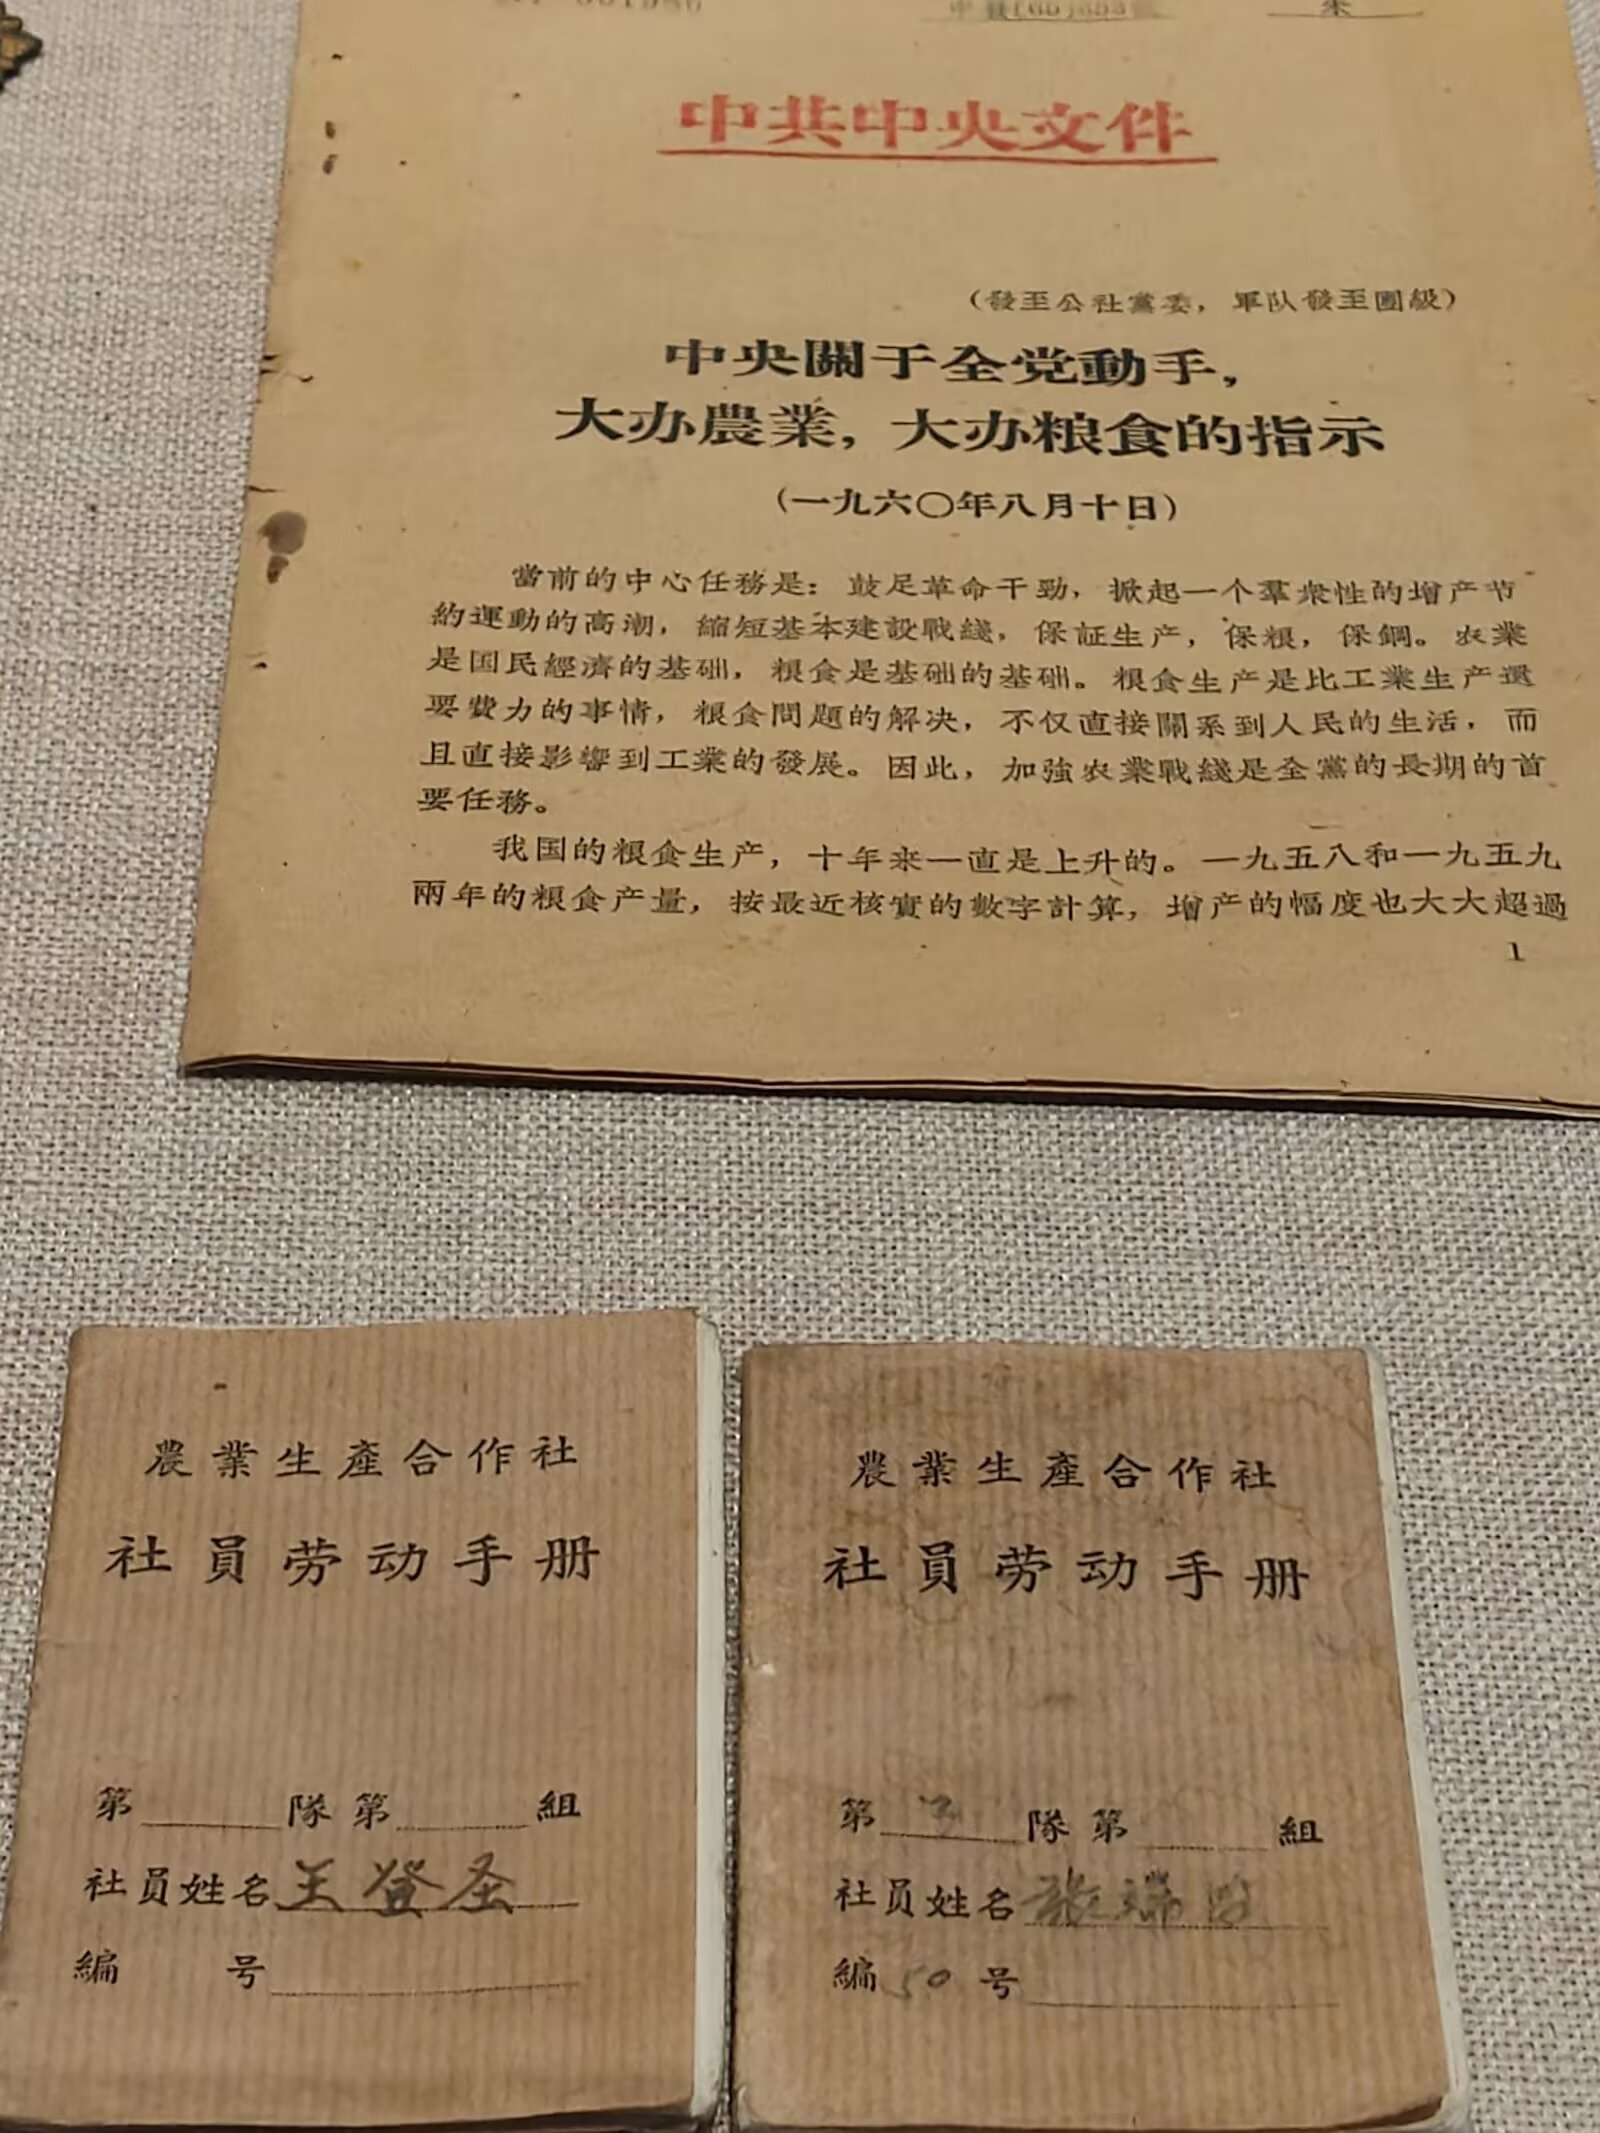 中共中央文件
（發至公社黨委，軍队發至團級）
中央關于全党動手，
大办農業，大办粮食的指示
（一九六〇年八月十日）
當前的中心任務是：鼓足革命干勁，掀起一个羣衆性的增产节
約運動的高潮，縮短基本建設戰綫，保証生产，保粮，保鋼。农業
是国民經濟的基础，粮食是基础的基础。粮食生产是比工業生产還
要費力的事情，粮食問題的解决，不仅直接關系到人民的生活，而
且直接影響到工業的發展。因此，加強农業戰綫是全黨的長期的首
要任務。
我国的粮食生产，十年来一直是上升的。一九五八和一九五九
兩年的粮食产量，按最近核實的數字計算，增产的幅度也大大超過
1
農業生產合作社
社員劳动手册
第 隊第 組
社員姓名王登圣
編 号
農業生產合作社
社員劳动手册
第 隊第 組
社員姓名張瑞
編50号